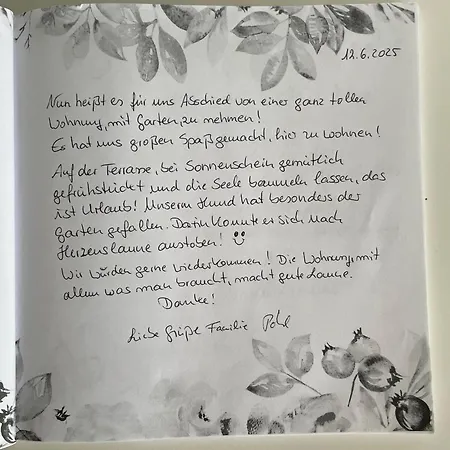 12.6.2025
Nun heißt es für uns Abschied von einer ganz tollen
Wohnung, mit Garten, zu nehmen!
Es hat uns großen Spaß gemacht, hier zu wohnen!
Auf der Terrasse, bei Sonnenschein gemütlich
gefrühstückt und die Seele baumeln lassen, das
ist Urlaub! Unserm Hund hat besonders der
Garten gefallen. Darin konnte er sich nach
Herzenslaune austoben! ☺
Wir würden gerne wiederkommen! Die Wohnung, mit
allem was man braucht, macht gute Laune.
Danke!
Liebe Grüße Familie